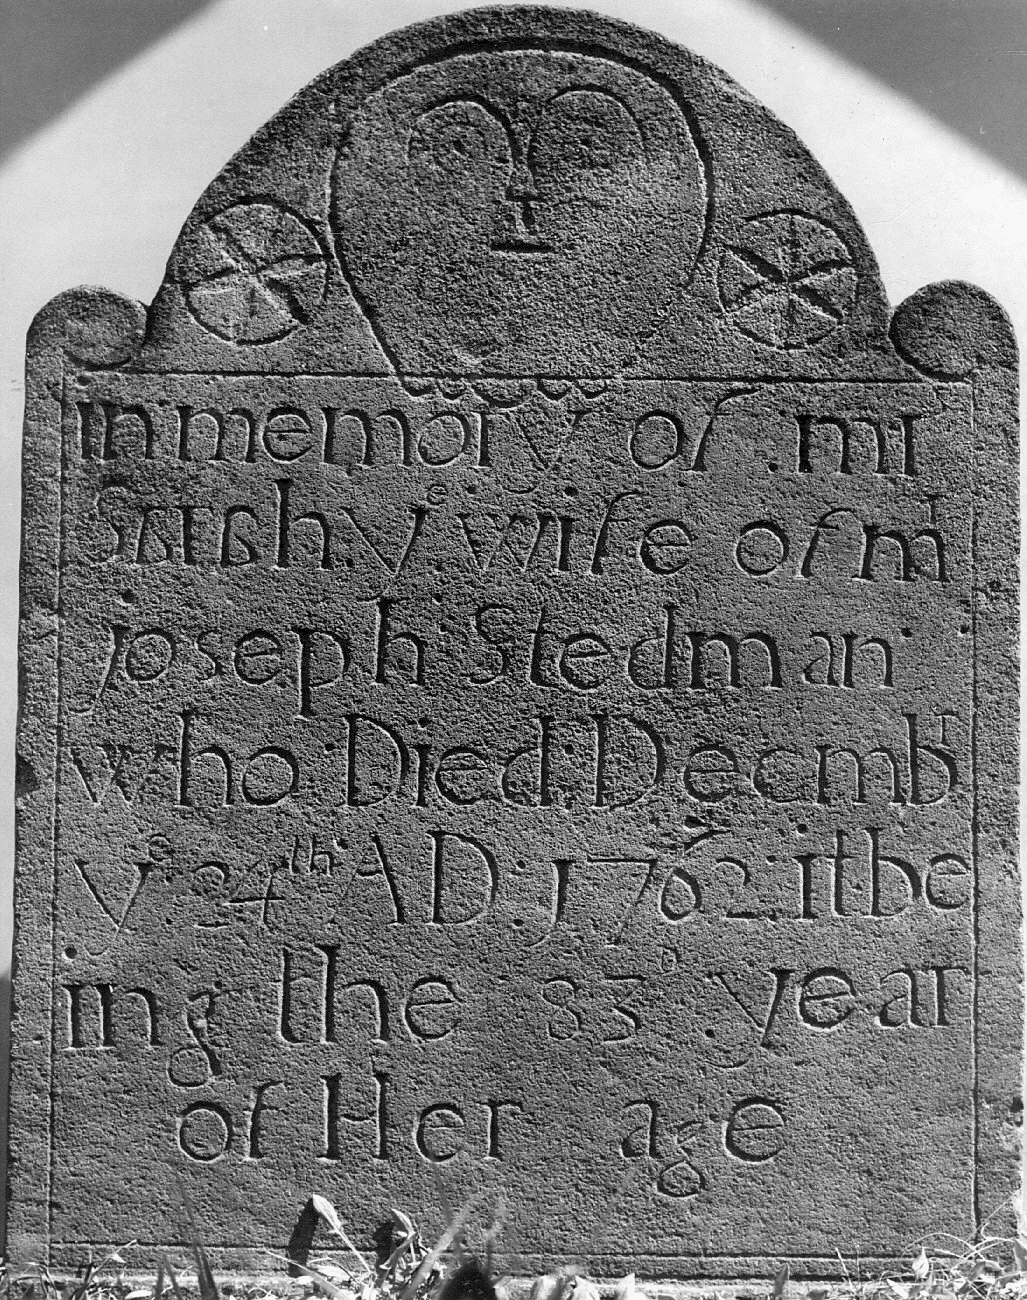 in memory of mr
Sarah yͤ wife of mr
joseph Stedman
who Died Decmbr
ye 24th AD 1762 it be
ing the 83 year
of Her age